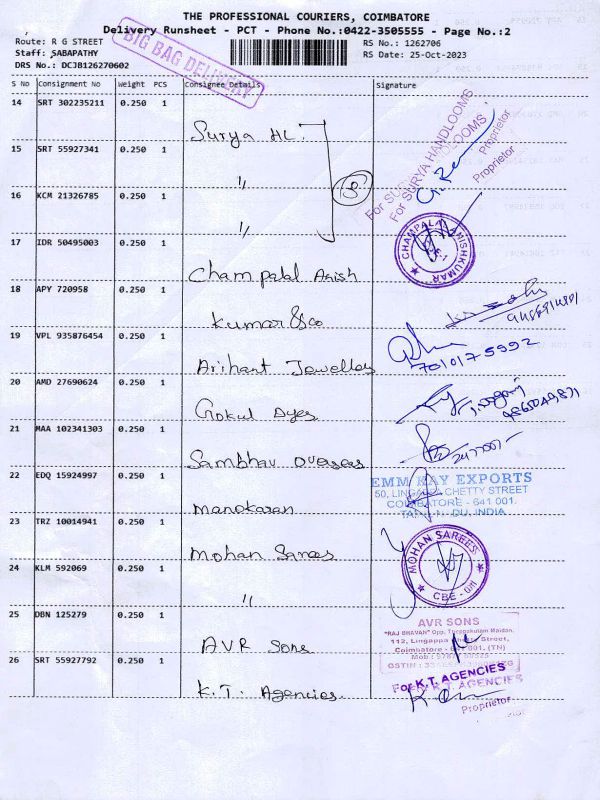 THE PROFESSIONAL COURIERS, COIMBATORE
Delivery Runsheet - PCT - Phone No.:0422-3505555 - Page No.:2
Route: R G STREET RS No.: 1262706
Staff: SABAPATHY RS Date: 25-Oct-2023
DRS No.: DCJB126270602
BIG BAG DELIVERY
S No Consignment No Weight PCS Consignee Details Signature
14 SRT 302235211 0.250 1 Surya HL.
For SURYA HANDLOOMS
Proprietor
15 SRT 55927341 0.250 1 "
16 KCM 21326785 0.250 1 "
17 IDR 50495003 0.250 1 Champalal Anish
CHAMPALAL ANISHKUMAR
18 APY 720958 0.250 1 Kumar & Co
19 VPL 935876454 0.250 1 Arihant Jewellers
7010175992
20 AMD 27690624 0.250 1 Gokul Dyes
21 MAA 102341303 0.250 1 Sambhav Overseas
22 EDQ 15924997 0.250 1 Manokaran
EMM KAY EXPORTS
50, LINGAPPA CHETTY STREET
COIMBATORE - 641 001.
INDIA
23 TRZ 10014941 0.250 1 Mohan Sarees
MOHAN SAREES
CBE - 641
24 KLM 592069 0.250 1 "
25 DBN 125279 0.250 1 AVR Sons
AVR SONS
"RAJ BHAVAN" Opp.
112, Lingappa Street,
Coimbatore - 641 001. (TN)
26 SRT 55927792 0.250 1 K.T. Agencies.
For K.T. AGENCIES
Proprietor